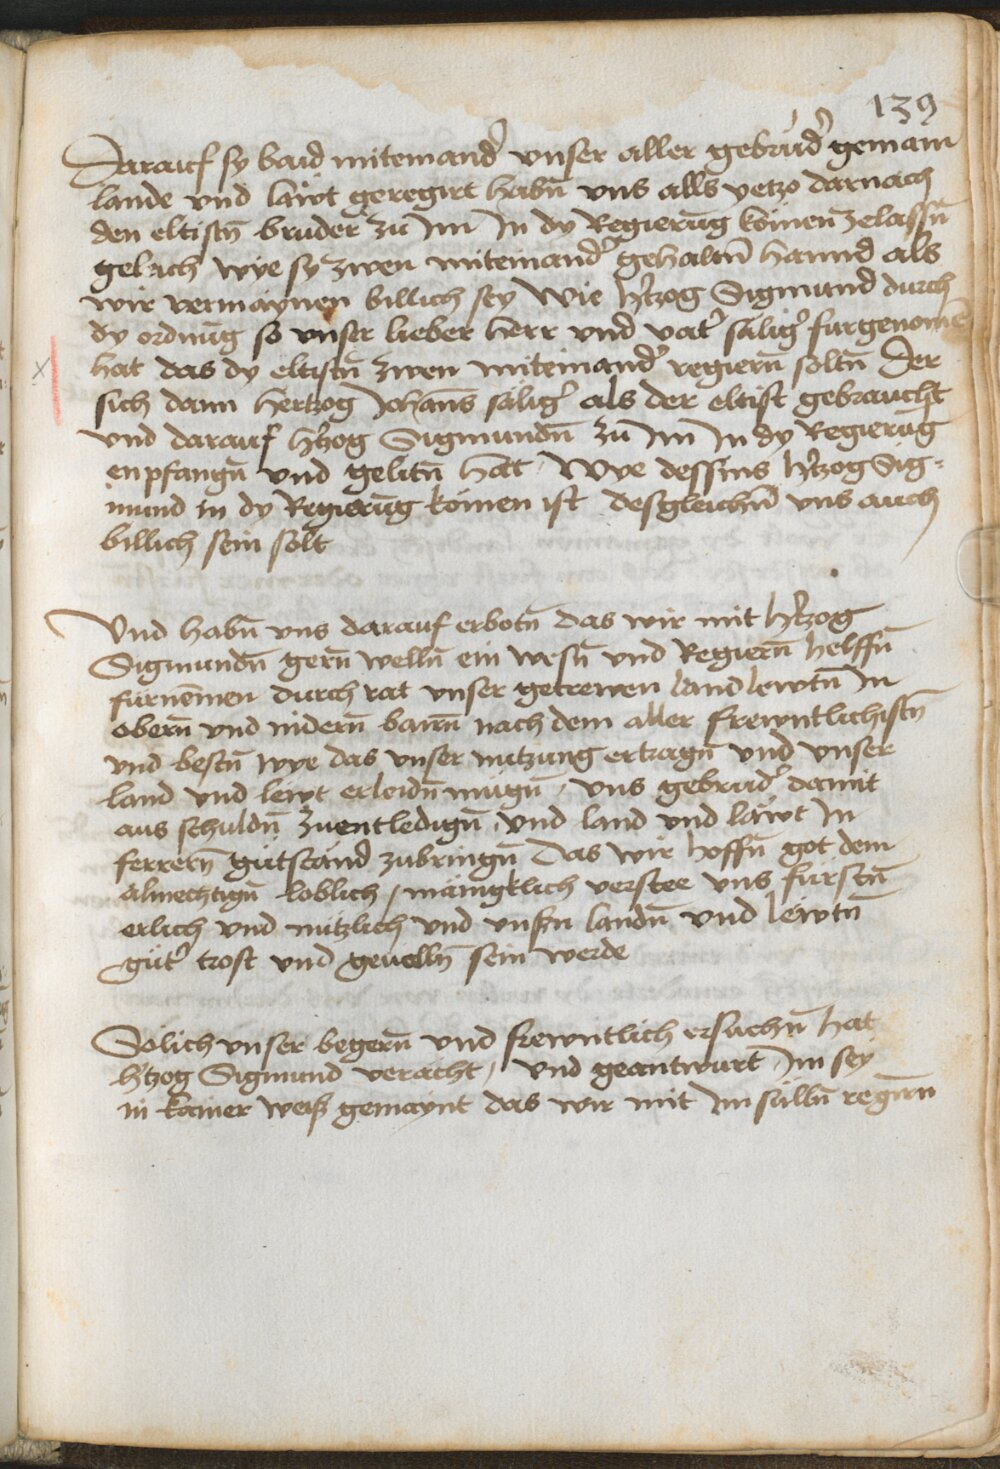 139
Darauf sy baid miteinand' vnser aller gebrud' gemain
lande vnd läwt geregirt habn̄ vns alls yetzo darnach
den eltistn̄ bruder zu Im In dy Regierūg kōmen zelassn̄
geleich wye sy zwen miteinand' gehaltn̄ hannd als
wir vermaynen billich sey Wie h'tzog Sigmund durch
dy ordnūg so vnser lieber herr vnd vat' sälig' furgenomē
hat das dy eltistn̄ zwen miteinand' regiern̄ soltn̄ Der
sich dann hertzog Johanns sälig' als der eltist gebraucht
vnd darauf h'tzog Sigmundn̄ zu Im In dy Regierūg
enpfangn̄ vnd gelitn̄ hat / Wye dessins h'tzog Sig-
mund in dy Regierūg kōmen ist desgleichn̄ vns auch
billich sein solt
Vnd habn̄ vns darauf erbotn̄ das wir mit h'tzog
Sigmundn̄ gern̄ welln̄ ein wesn̄ vnd Regiern̄ helffn̄
furnēmen durch rat vnser getrewen landlewtn̄ In
obern̄ vnd nidern̄ bairn̄ nach dem aller frewntlichistn̄
vnd bestn̄ wye das vnser nutzung ertragn̄ vnd vnser
land vnd lewt erleidn̄ mügn̄ / vns gebrud' damit
aus schuldn̄ zuentledign̄ / vnd land vnd läwt In
ferrern̄ gutstand zubringn̄ Das wir hoffn̄ got dem
almechtign̄ loblich / mäingklich verstee vns fürstn̄
erlich vnd nützlich vnd vnsn̄ landn̄ vnd lewtn̄
güt' trost vnd geuelln̄ sein werde
Sölich vnser begern̄ vnd frewntlich ersuchn̄ hat
h'tzog Sigmund veracht / vnd geantwurt Im sey
in kainer weiß gemaynt das wir mit Im sülln̄ regirn̄